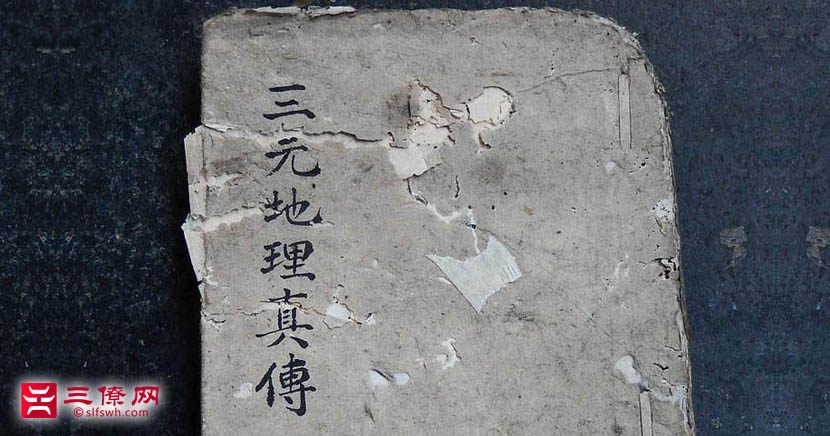 三元地理真傳
三僚网
©slfswh.com